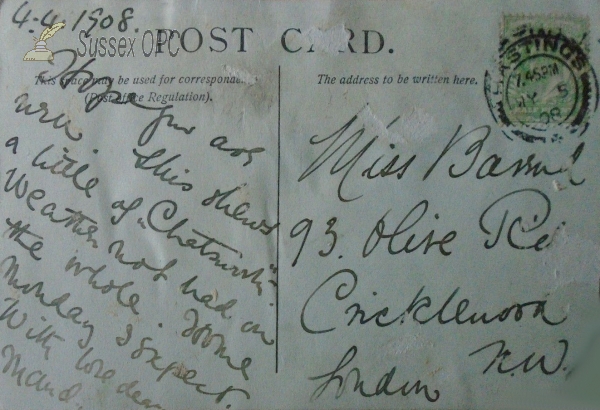 4-4-1908.
Sussex OPC
POST CARD.
This space may be used for correspondence
(Post Office Regulation).
The address to be written here.
HASTINGS
7.45PM
MY 5
08
Hope you are
well. This shews
a little of "Chatsworth".
Weather not bad on
the whole. Home
Monday I expect.
With love dear
Maud.
Miss
93. Olive Rd
Cricklewood
London N.W.